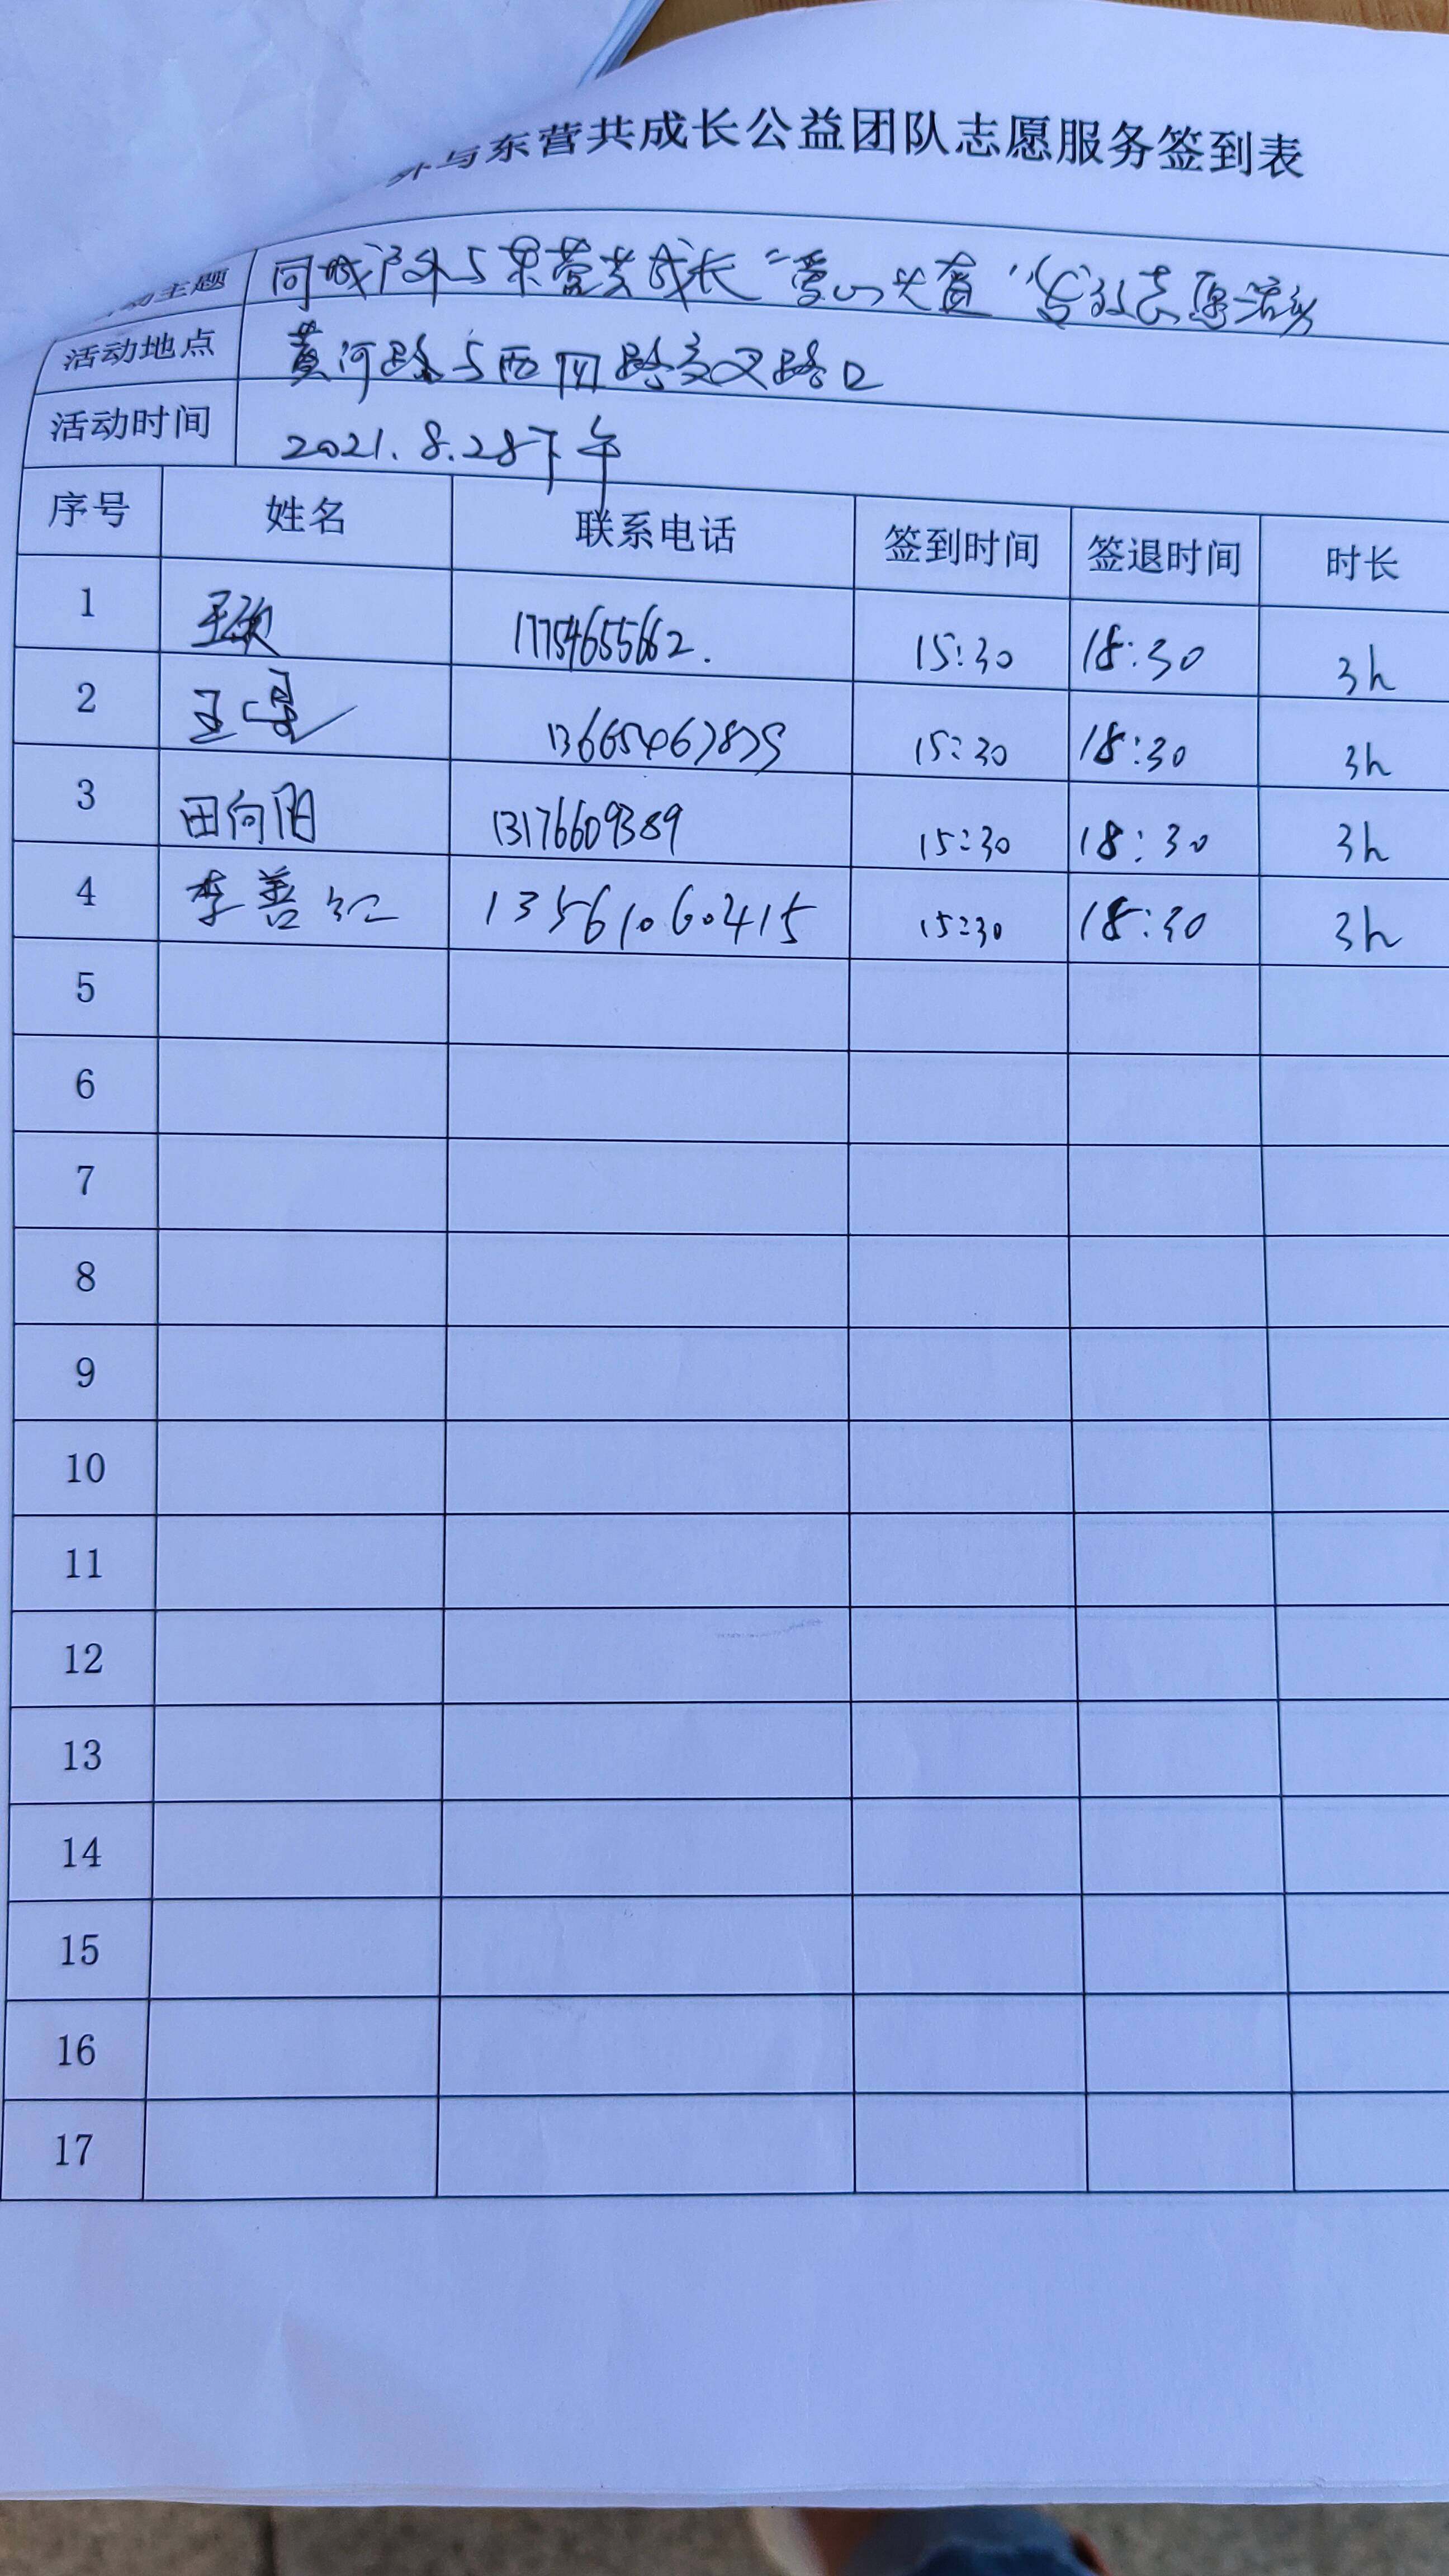 外与东营共成长公益团队志愿服务签到表
动主题 同城户外与东营共成长“爱心义卖”志愿活动
活动地点 黄河路与西四路交叉路口
活动时间 2021.8.28下午
序号 姓名 联系电话 签到时间 签退时间 时长
1 17754655662. 15:30 18:30 3h
2 王 15:30 18:30 3h
3 田向阳 13176609389 15:30 18:30 3h
4 李善红 13561060415 15:30 18:30 3h
5
6
7
8
9
10
11
12
13
14
15
16
17